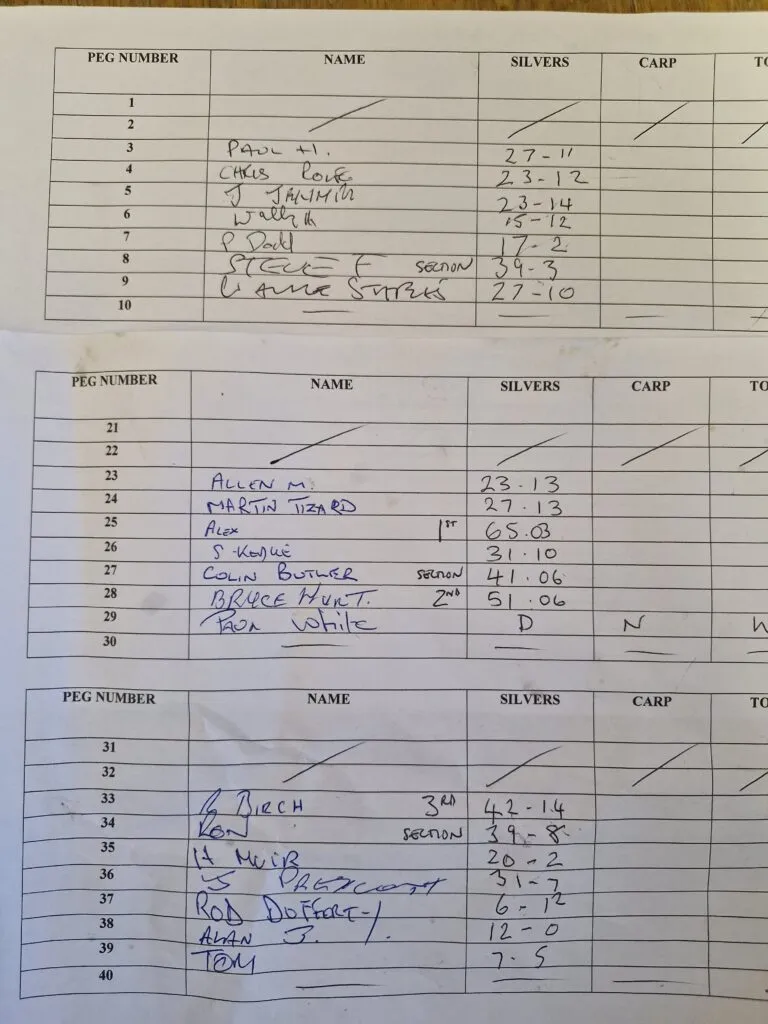 PEG NUMBER NAME SILVERS CARP TO
1
2
3 PAUL H. 27-11
4 CHRIS ROLFE 23-12
5 J 23-14
6 Wally 15-12
7 P Dodd 17-2
8 STEVE F SECTION 39-3
9 27-10
10
PEG NUMBER NAME SILVERS CARP TO
21
22
23 ALLEN M. 23.13
24 MARTIN TIZARD 27.13
25 ALEX 1ST 65.03
26 S 31.10
27 COLIN BUTLER SECTION 41.06
28 BRYCE HURT. 2ND 51.06
29 PAUL White D N W
30
PEG NUMBER NAME SILVERS CARP TO
31
32
33 R BIRCH 3RD 42-14
34 RON SECTION 39-8
35 H MUIR 20-2
36 PRESCOTT 31-7
37 ROD 6-12
38 ALAN J. 12-0
39 TOM 7.5
40